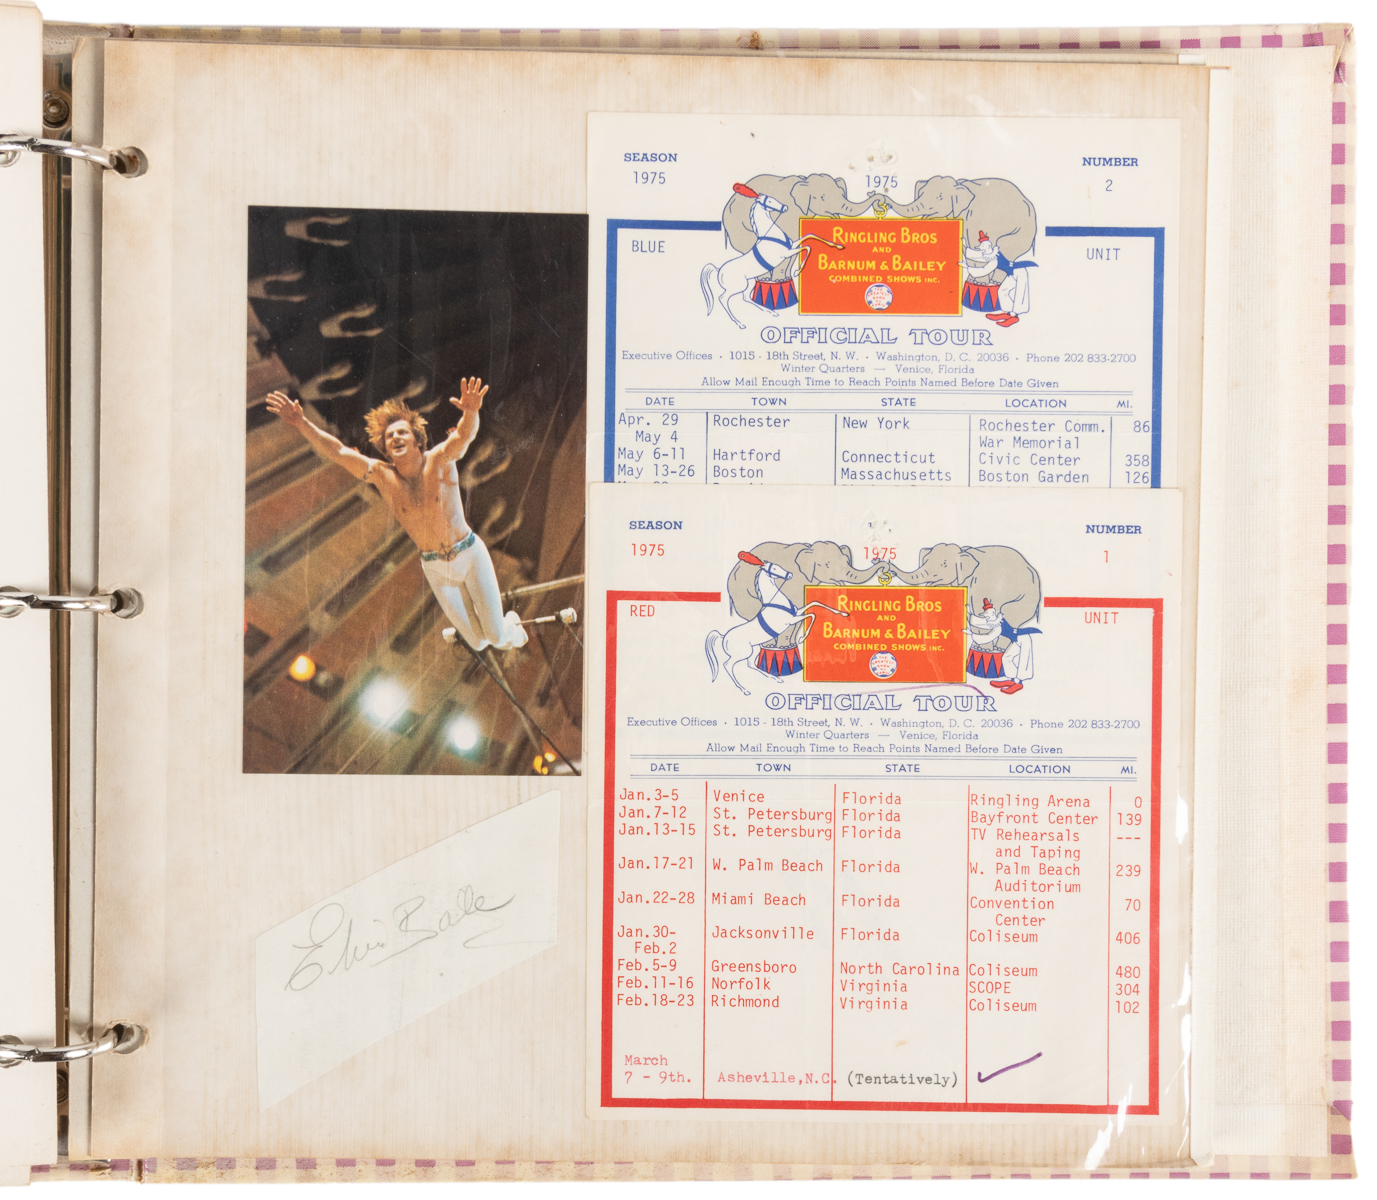 SEASON
1975
1975
NUMBER
2
BLUE
UNIT
RINGLING BROS
AND
BARNUM & BAILEY
COMBINED SHOWS INC.
OFFICIAL TOUR
Executive Offices · 1015 - 18th Street, N. W. · Washington, D. C. 20036 · Phone 202 833-2700
Winter Quarters — Venice, Florida
Allow Mail Enough Time to Reach Points Named Before Date Given
DATE TOWN STATE LOCATION MI.
Apr. 29 Rochester New York Rochester Comm. 86
May 4 War Memorial
May 6-11 Hartford Connecticut Civic Center 358
May 13-26 Boston Massachusetts Boston Garden 126
SEASON
1975
1975
NUMBER
1
RED
UNIT
RINGLING BROS
AND
BARNUM & BAILEY
COMBINED SHOWS INC.
THE GREATEST SHOW ON EARTH
OFFICIAL TOUR
Executive Offices · 1015 - 18th Street, N. W. · Washington, D. C. 20036 · Phone 202 833-2700
Winter Quarters — Venice, Florida
Allow Mail Enough Time to Reach Points Named Before Date Given
DATE TOWN STATE LOCATION MI.
Jan.3-5 Venice Florida Ringling Arena 0
Jan.7-12 St. Petersburg Florida Bayfront Center 139
Jan.13-15 St. Petersburg Florida TV Rehearsals ---
and Taping
Jan.17-21 W. Palm Beach Florida W. Palm Beach 239
Auditorium
Jan.22-28 Miami Beach Florida Convention 70
Center
Jan.30- Jacksonville Florida Coliseum 406
Feb.2
Feb.5-9 Greensboro North Carolina Coliseum 480
Feb.11-16 Norfolk Virginia SCOPE 304
Feb.18-23 Richmond Virginia Coliseum 102
March
7 - 9th. Asheville,N.C. (Tentatively)
Elvin Bale